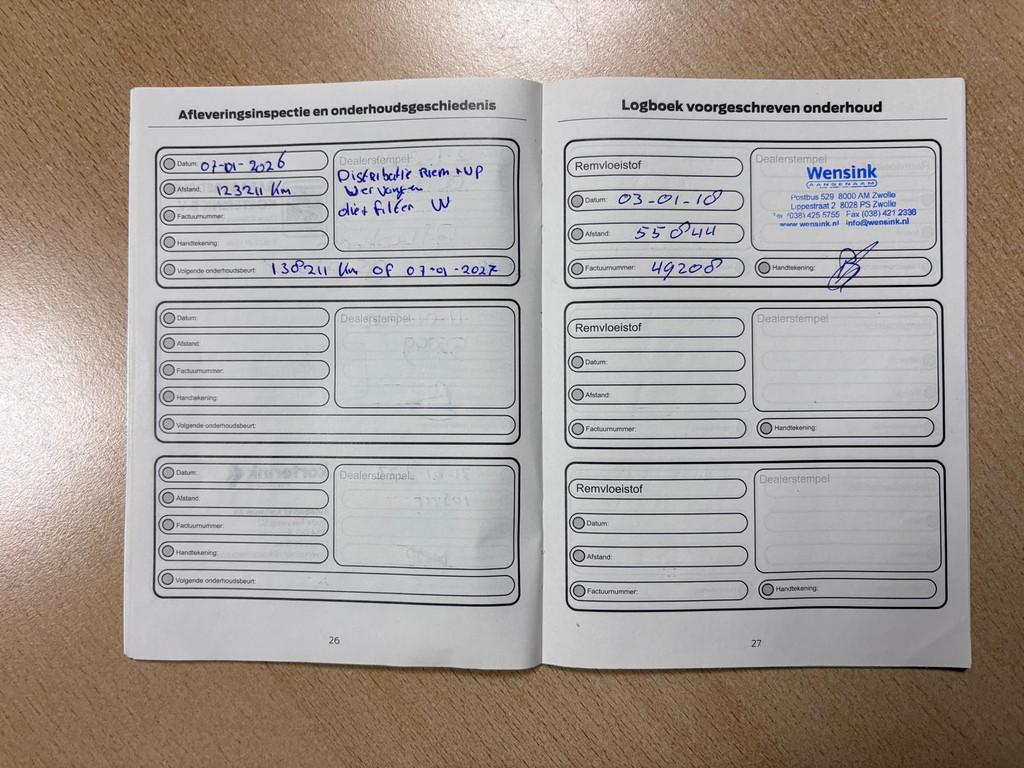 Afleveringsinspectie en onderhoudsgeschiedenis
Datum: 07-01-2026
Afstand: 123211 Km
Factuurnummer:
Handtekening:
Dealerstempel
Distributie Riem + WP
Vervangen
olie + filter
Volgende onderhoudsbeurt: 138211 Km OF 07-01-2027
Datum:
Afstand:
Factuurnummer:
Handtekening:
Dealerstempel
Volgende onderhoudsbeurt:
Datum:
Afstand:
Factuurnummer:
Handtekening:
Dealerstempel
Volgende onderhoudsbeurt:
26
Logboek voorgeschreven onderhoud
Remvloeistof
Datum: 03-01-18
Afstand: 55844
Factuurnummer: 49208
Dealerstempel
Wensink
AANGENAAM
Postbus 529 8000 AM Zwolle
Lippestraat 2 8028 PS Zwolle
(038) 425 5755 Fax (038) 421 2336
www.wensink.nl info@wensink.nl
Handtekening:
Remvloeistof
Datum:
Afstand:
Factuurnummer:
Dealerstempel
Handtekening:
Remvloeistof
Datum:
Afstand:
Factuurnummer:
Dealerstempel
Handtekening:
27